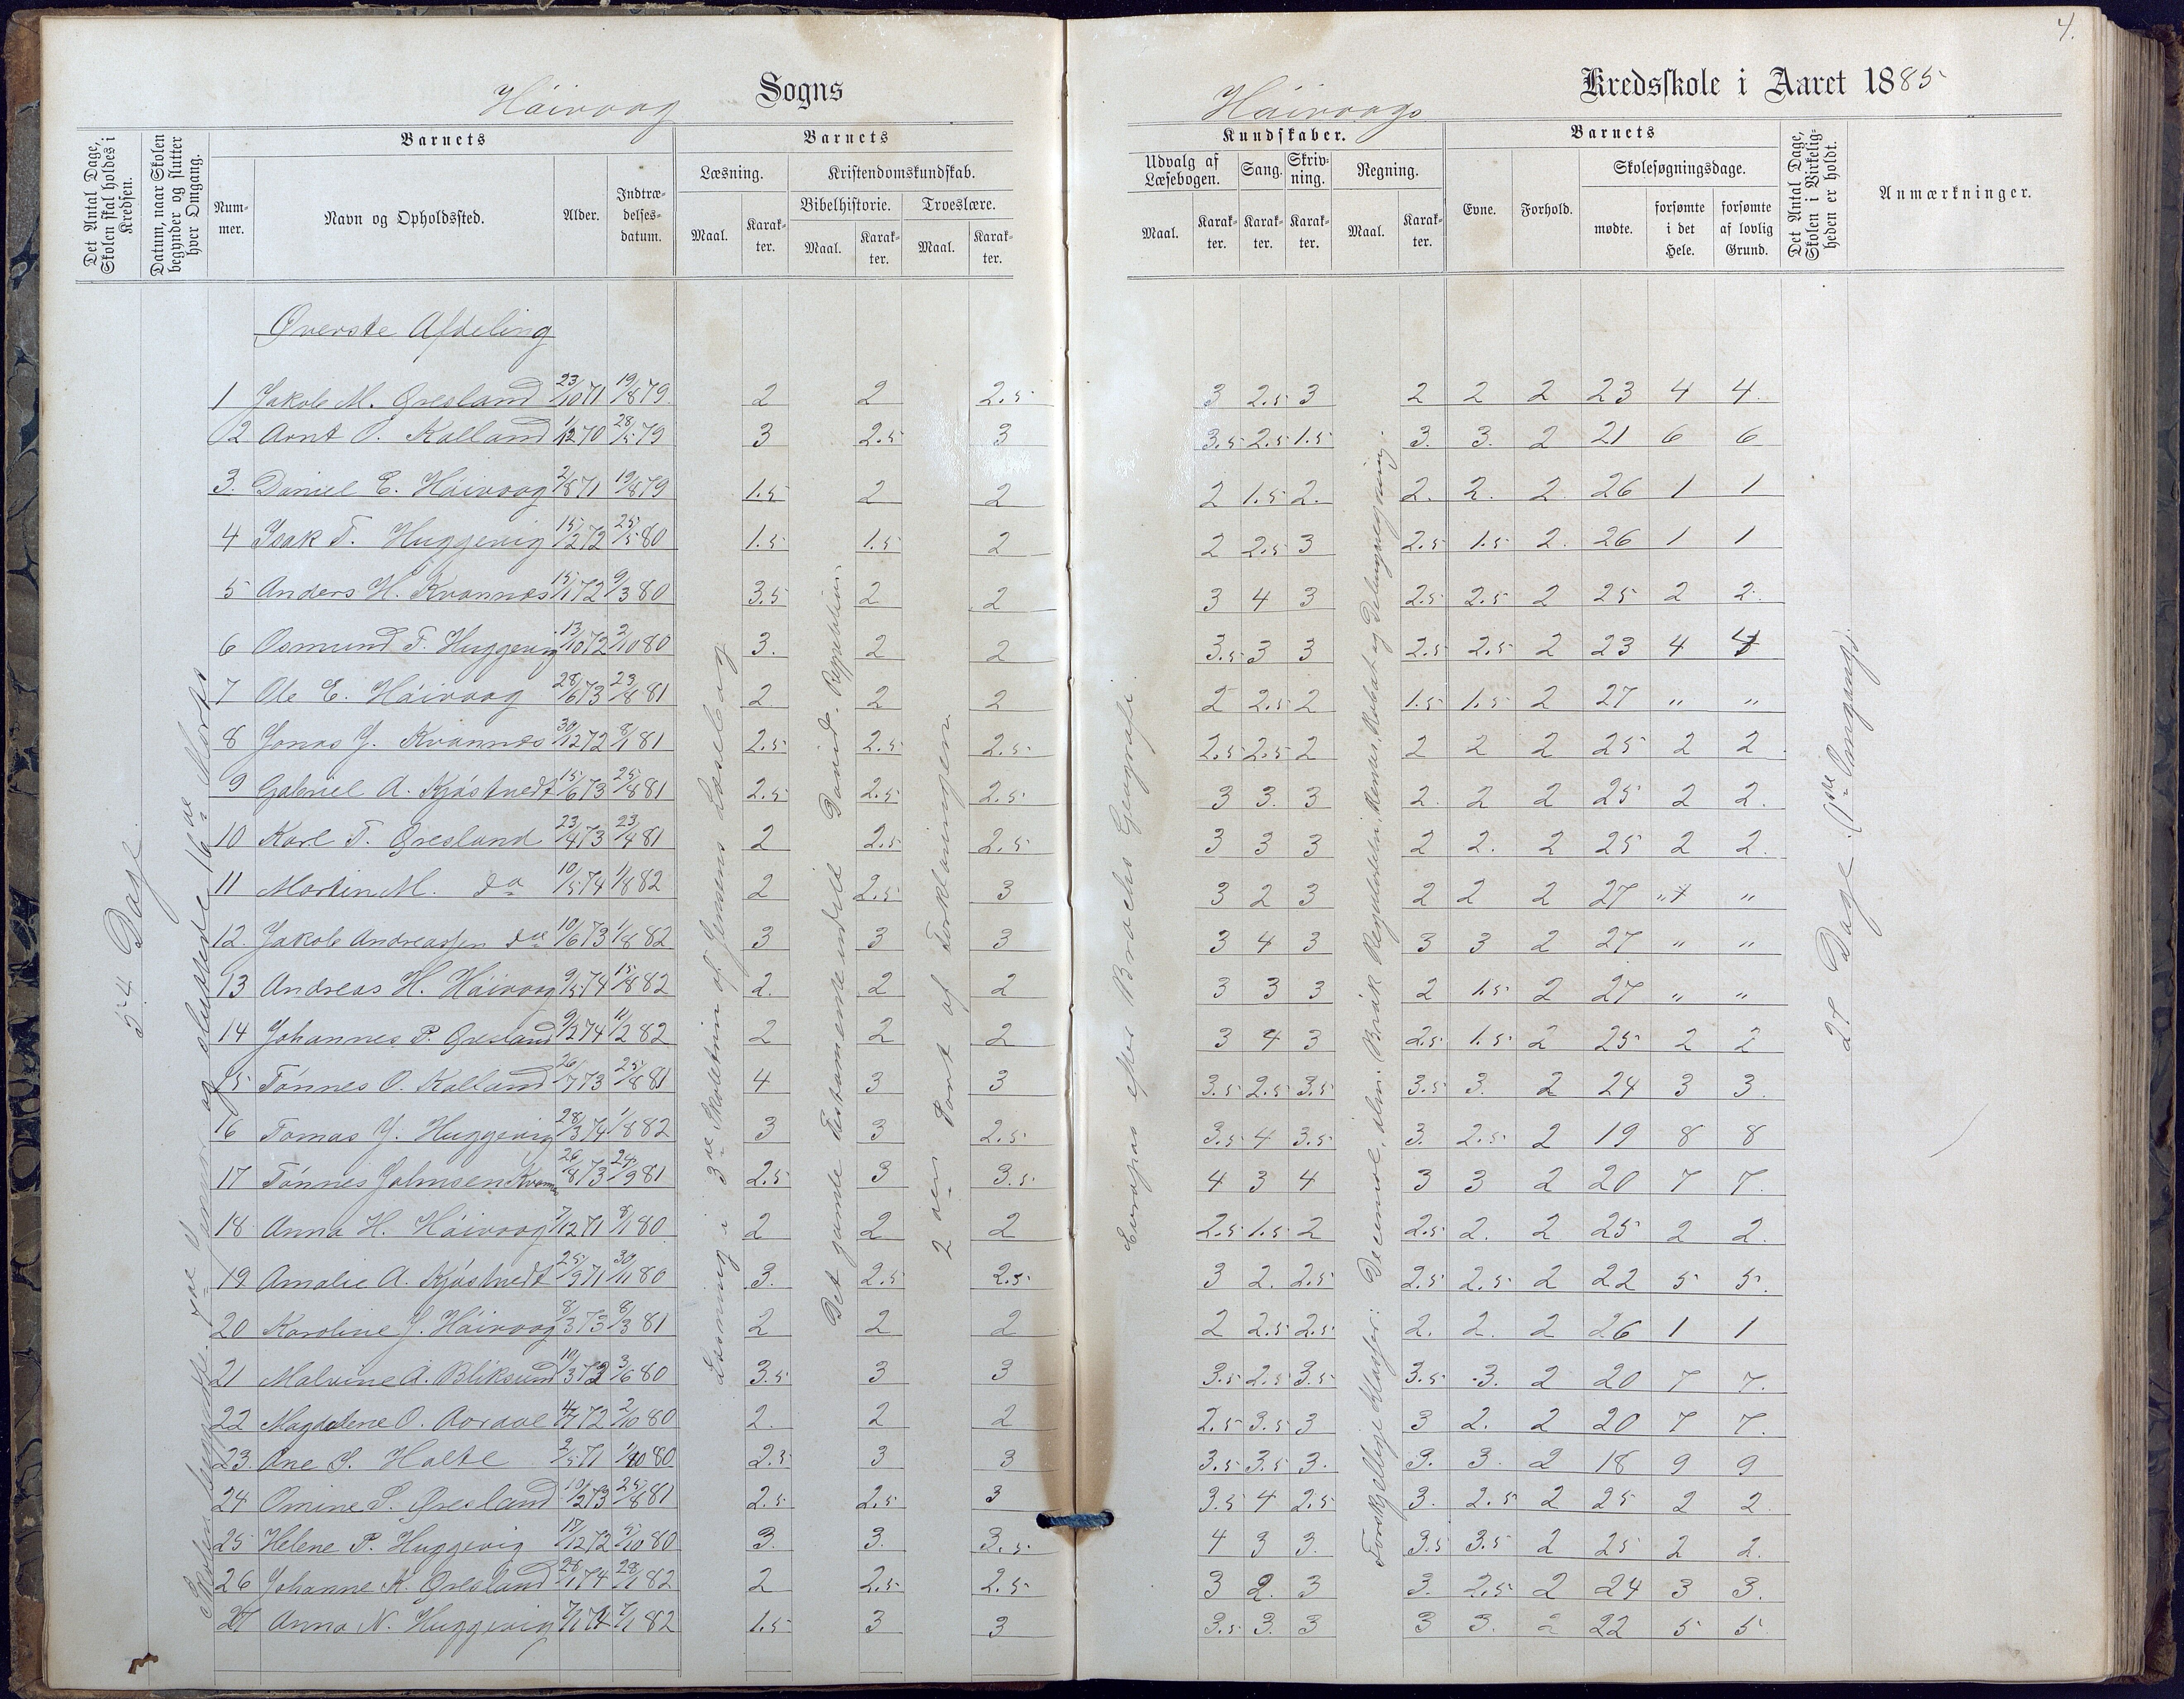 4.
Håivaag Sogns
Håivaags Kredsskole i Aaret 1885
Det Antal Dage, Skolen skal holdes i Kredsen.
Datum, naar Skolen begynder og slutter hver Omgang.
Barnets
Nummer.
Navn og Opholdssted.
Alder.
Indtrædelsesdatum.
Barnets
Læsning.
Maal.
Karakter.
Kristendomskundskab.
Bibelhistorie.
Maal.
Karakter.
Troeslære.
Maal.
Karakter.
Kundskaber.
Udvalg af Læsebogen.
Maal.
Karakter.
Sang.
Karakter.
Skrivning.
Karakter.
Regning.
Maal.
Karakter.
Barnets
Evne.
Forhold.
Skolesøgningsdage.
mødte.
forsømte i det Hele.
forsømte af lovlig Grund.
Det Antal Dage, Skolen i Virkeligheden er holdt.
Anmærkninger.
Øverste Afdeling
54 Dage
Skolen begyndte 7de Januar og sluttede 16de Marts
Læsning i 3de Skoletrin af Jensens Læsebog
Det gamle Testamente indtil David. Repetition.
2den Part af Forklaringen
Europas efter Brochs Geografi.
27 Dage
1 Jakob M. Øresland 23/10 71 19/8 79. 2 2 2.5 3 2.5 3 2 2 2 23 4 4.
2 Arnt O. Kalland 1/12 70 28/5 79 3 2.5 3 3.5 2.5 1.5 3. 3. 2 21 6 6
3. Daniel E. Håivaag 2/8 71 19/8 79 1.5 2 2 2 1.5 2. 2. 2. 2 26 1 1
4 Isak T. Huggevig 15/2 72 25/5 80 1.5 1.5 2 2 2.5 3 2.5 1.5 2. 26 1 1
5 Anders H. Kvannes 15/1 72 9/3 80 3.5 2 2 3 4 3 2.5 2.5 2 25 2 2.
6 Osmund T. Huggevig 13/10 72 2/10 80 3. 2 2 3.5 3 3 2.5 2.5 2 23 4 4
7 Ole E. Håivaag 28/6 73 23/8 81 2 2 2 2 2.5 2 1.5 1.5 2 27 " "
8 Jonas J. Kvannes 30/12 72 8/1 81 2.5 2.5 2.5 2.5 2.5 2 2 2 2 25 2 2
9 Gabriel A. Kjøstvedt 15/6 73 25/8 81 2.5 2.5 2.5 3 3. 3 2. 2 2 25 2 2.
10 Karl T. Øresland 23/4 73 23/4 81 2 2.5 2.5 3 3 3 2 2. 2 25 2 2.
11 Martin M. do 10/5 74 1/8 82 2 2.5 3 3 2 3 2 2 2 27 " "
12. Jakob Andreassen do 10/6 73 1/8 82 3 3 3 3 4 3 3 3 2 27 " "
13 Andreas H. Håivaag 9/5 74 15/8 82 2. 2 2 3 3 3 2 1.5 2 27 " "
14 Johannes P. Øresland 9/2 74 11/2 82 2 2 2 3 4 3 2.5 1.5 2 25 2 2
15 Tønnes O. Kalland 26/7 73 25/8 81 4 3 3 3.5 2.5 3.5 3.5 3. 2 24 3 3
16 Tomas J. Huggevig 28/3 74 1/8 82 3 3 2.5 3.5 4 3.5 3. 2.5 2 19 8 8
17 Tønnes Johnsen Kvannes 26/8 73 24/9 81 2.5 3 3.5 4 3 4 3 3 2 20 7 7.
18 Anna H. Håivaag 7/12 71 8/1 80 2 2 2 2.5 1.5 2 2.5 2. 2 25 2 2.
19 Amalie A. Kjøstvedt 25/9 71 30/11 80 3. 2.5 2.5 3 2. 2.5 2.5 2.5 2 22 5 5.
20 Karoline J. Håivaag 8/3 73 8/3 81 2 2 2 2 2.5 2.5 2. 2. 2 26 1 1
21 Malvine A. Bliksund 10/3 72 3/6 80 3.5 3 3 3.5 2.5 3.5 3.5 3. 2 20 7 7.
22 Magdalene O. Aaraae 4/7 72 2/10 80 2. 2 2 2.5 3.5 3 3 2. 2 20 7 7.
23. Ane S. Holte 2/5 71 1/10 80 2.5 3 3 3.5 3.5 3. 3. 3. 2 18 9 9
24 Omine S. Øresland 10/2 73 25/8 81 2.5 2.5 3 3.5 4 2.5 3. 2.5 2 25 2 2
25 Helene P. Huggevig 17/12 72 5/10 80 3. 3. 3.5 4 3 3. 3.5 3.5 2 25 2 2.
26 Johanne K. Øresland 28/1 74 28/1 82 2 2.5 2.5 3 2. 3 3. 2.5 2 24 3 3.
27 Anna N. Huggevig 7/1 74 7/1 82 1.5 3 3 3.5 3. 3 3 3. 2 22 5 5